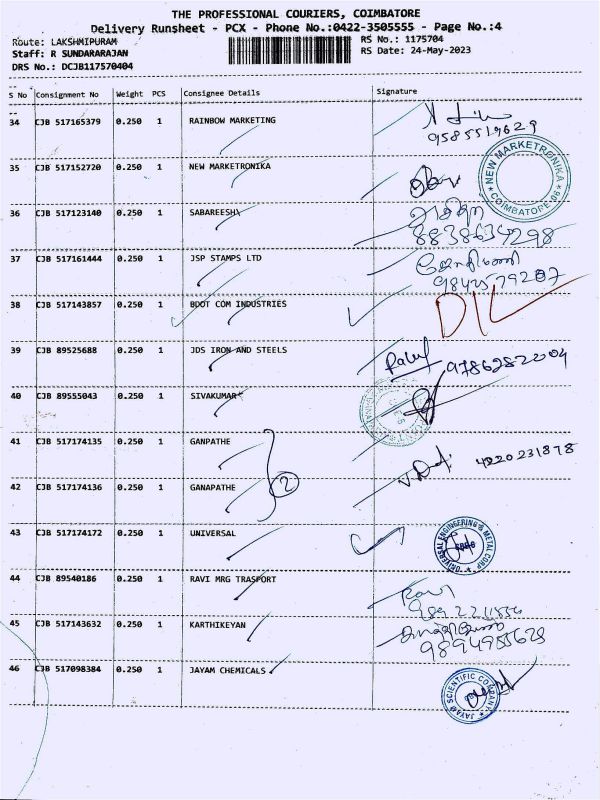 THE PROFESSIONAL COURIERS, COIMBATORE
Delivery Runsheet - PCX - Phone No.:0422-3505555 - Page No.:4
Route: LAKSHMIPURAM
RS No.: 1175704
Staff: R SUNDARARAJAN
RS Date: 24-May-2023
DRS No.: DCJB117570404
S No Consignment No Weight PCS Consignee Details Signature
34 CJB 517165379 0.250 1 RAINBOW MARKETING
9585519629
35 CJB 517152720 0.250 1 NEW MARKETRONIKA
NEW MARKETRONIKA COIMBATORE
36 CJB 517123140 0.250 1 SABAREESH
8838634298
37 CJB 517161444 0.250 1 JSP STAMPS LTD
9842579207
38 CJB 517143857 0.250 1 BDOT COM INDUSTRIES
39 CJB 89525688 0.250 1 JDS IRON AND STEELS
9786282204
40 CJB 89555043 0.250 1 SIVAKUMAR
41 CJB 517174135 0.250 1 GANPATHE
42 CJB 517174136 0.250 1 GANAPATHE 2
43 CJB 517174172 0.250 1 UNIVERSAL
UNIVERSAL ENGINEERING & METAL CORP
44 CJB 89540186 0.250 1 RAVI MRG TRASPORT
Ravi
45 CJB 517143632 0.250 1 KARTHIKEYAN
9894955628
46 CJB 517098384 0.250 1 JAYAM CHEMICALS
JAYAM SCIENTIFIC COMPANY